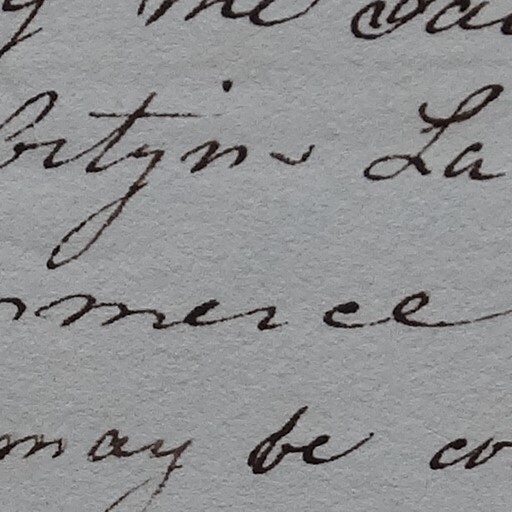 the
La
mmerce
may be co